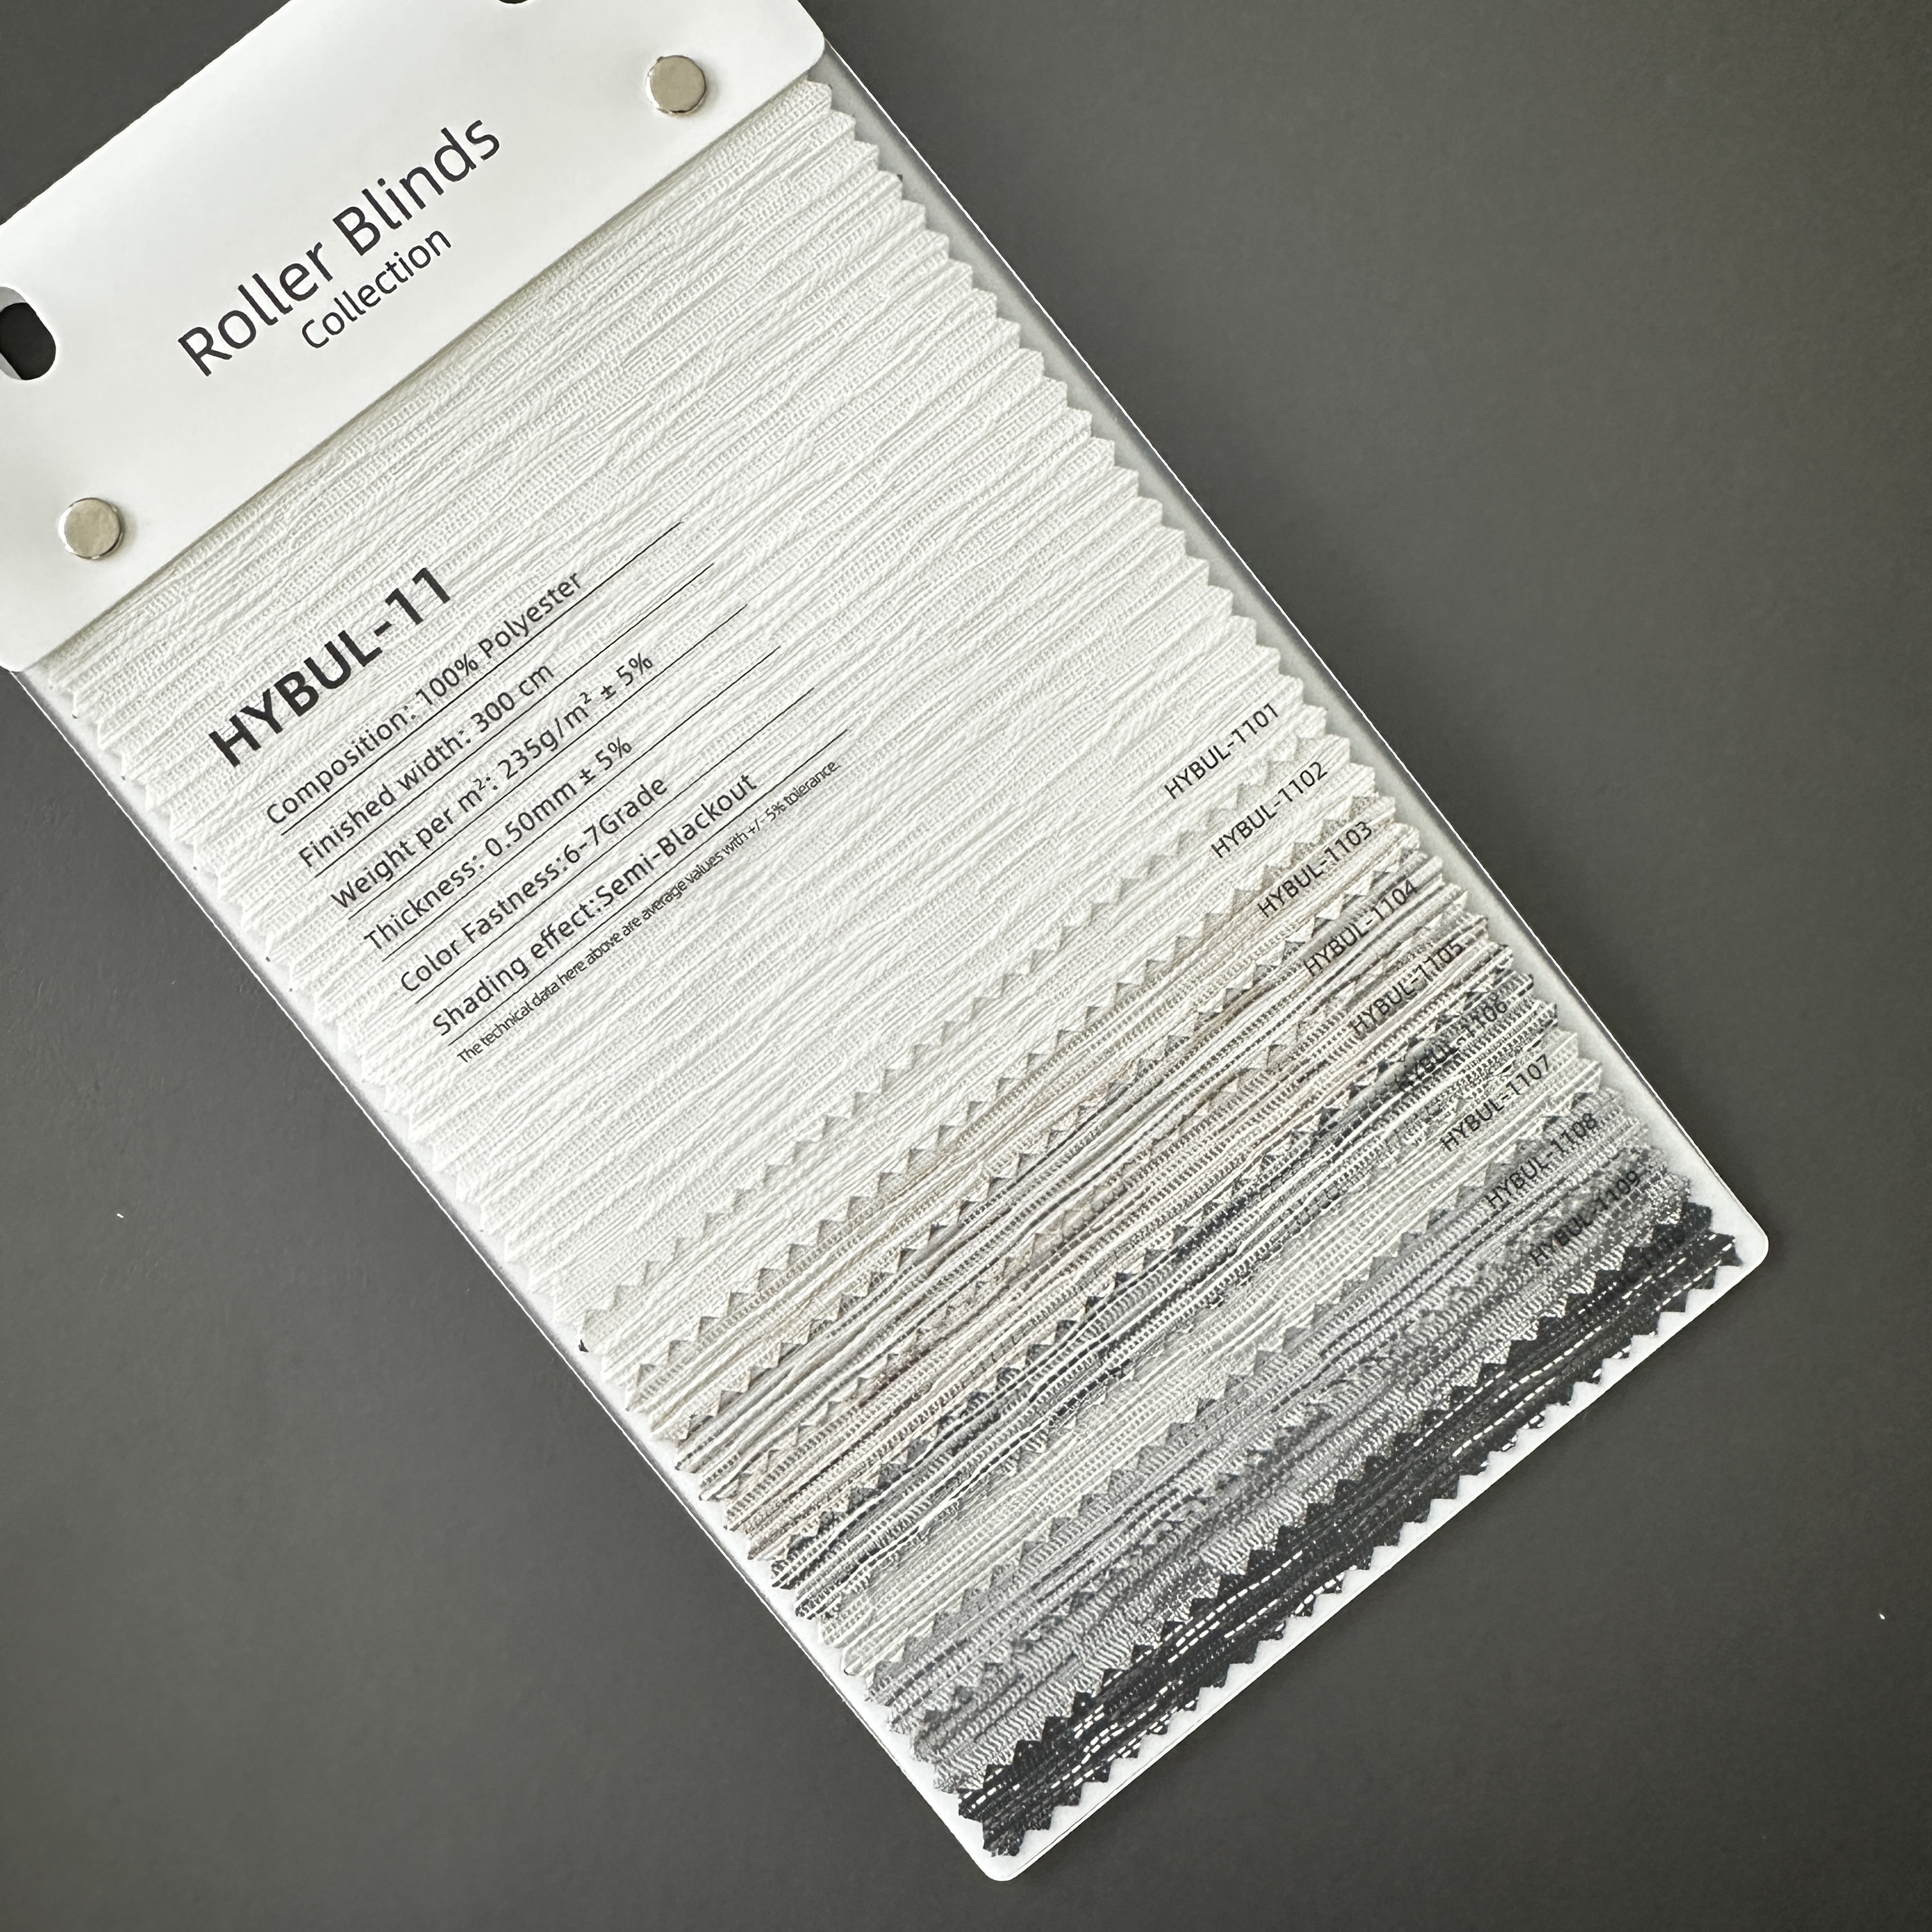 Roller Blinds
Collection
HYBUL-11
Composition: 100% Polyester
Finished width: 300 cm
Weight per m²: 235g/m² ± 5%
Thickness: 0.50mm ± 5%
Color Fastness:6-7Grade
Shading effect:Semi-Blackout
The technical data here above are average values with +/- 5% tolerance.
HYBUL-1101
HYBUL-1102
HYBUL-1103
HYBUL-1104
HYBUL-1105
HYBUL-1106
HYBUL-1107
HYBUL-1108
HYBUL-1109